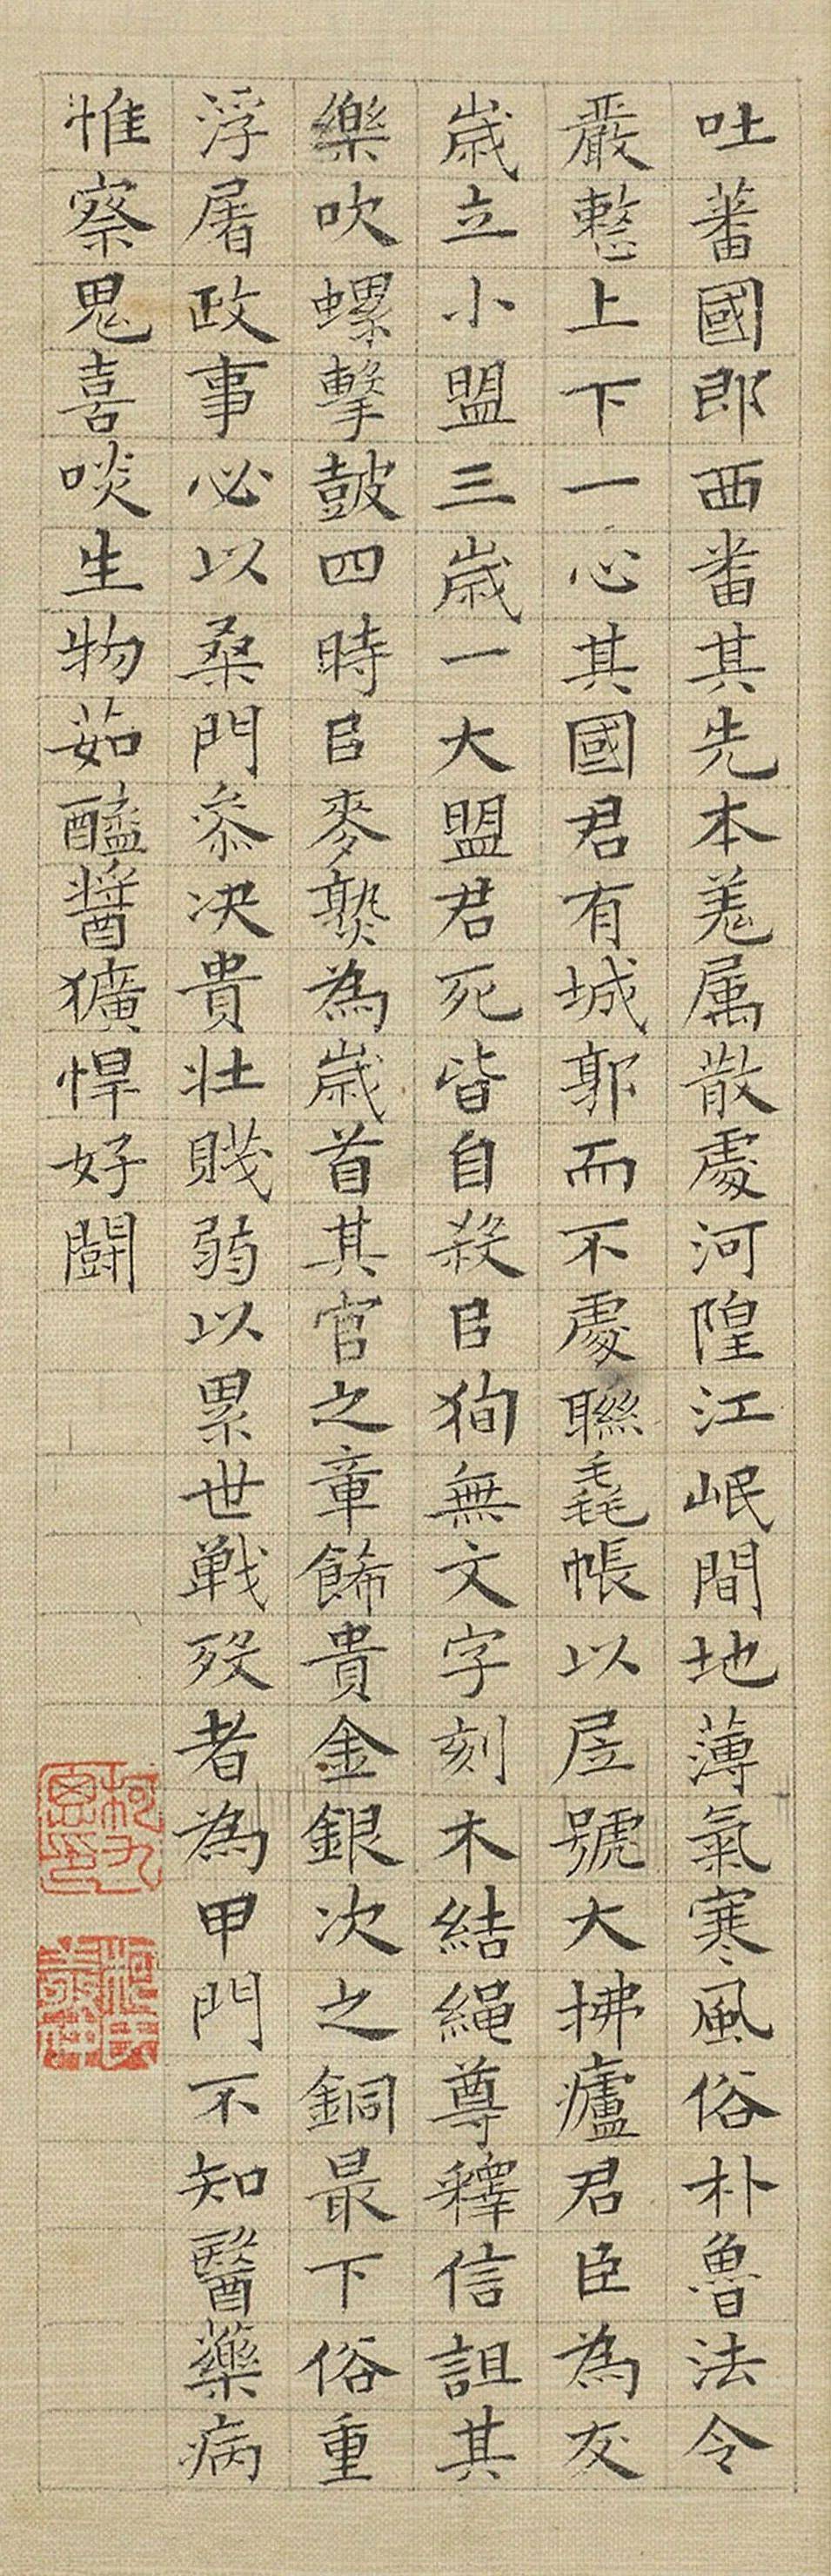 吐蕃國郎西番其先本羌属散處河隍江岷間地薄氣寒風俗朴魯法令
嚴整上下一心其國君有城郭而不處聯毳帳以居號大拂廬君臣為友
歲立小盟三歲一大盟君死皆自殺㠯狥無文字刻木結繩尊釋信詛其
樂吹螺擊鼓四時㠯麥熟為歲首其官之章飾貴金銀次之銅最下俗重
浮屠政事必以桑門叅决貴壯賤弱以累世戰歿者為甲門不知醫藥病
惟察鬼喜啖生物茹醯醬獷悍好鬪
柯九思印